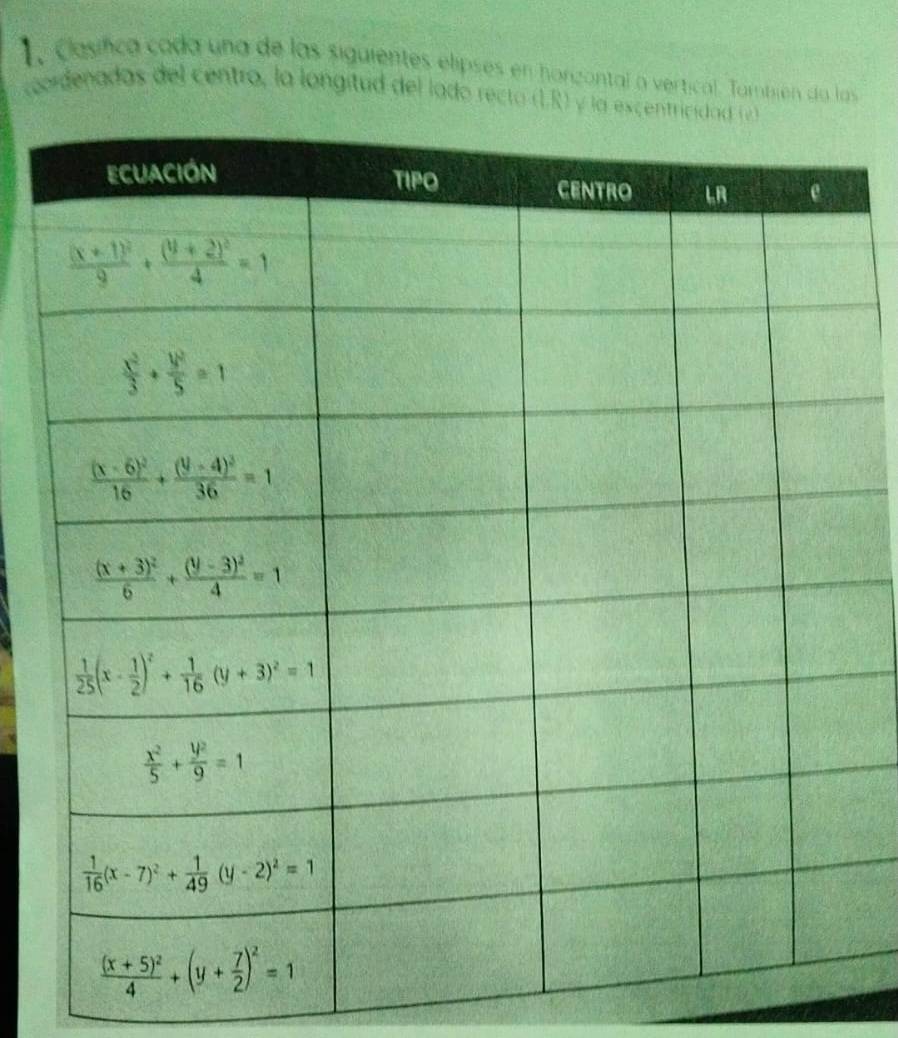 1. Clasifica cada una de las siguientes elipses en horizontal o vertical. También da las
coordenadas del centro, la longitud del lado recto (LR) y la excentricidad (e)
ECUACIÓN TIPO CENTRO LR e
(x + 1)²/9 + (y + 2)²/4 = 1
x²/3 + y²/5 = 1
(x - 6)²/16 + (y - 4)²/36 = 1
(x + 3)²/6 + (y - 3)²/4 = 1
1/25(x - 1/2)² + 1/16 (y + 3)² = 1
x²/5 + y²/9 = 1
1/16(x - 7)² + 1/49 (y - 2)² = 1
(x + 5)²/4 + (y + 7/2)² = 1